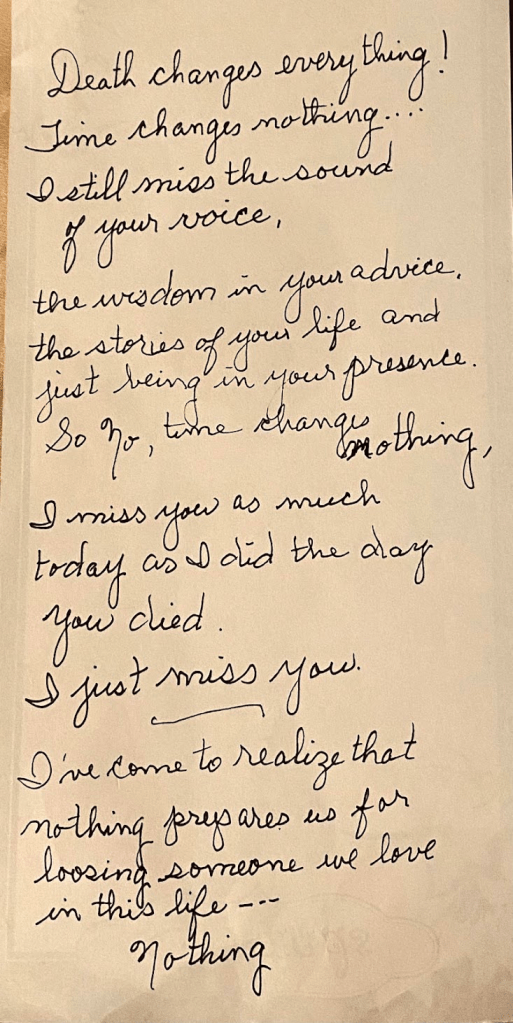 Death changes everything!
Time changes nothing....
I still miss the sound
of your voice,
the wisdom in your advice,
the stories of your life and
just being in your presence.
So No, time changes
nothing,
I miss you as much
today as I did the day
you died.
I just miss you.
I've come to realize that
nothing prepares us for
loosing someone we love
in this life ---
Nothing